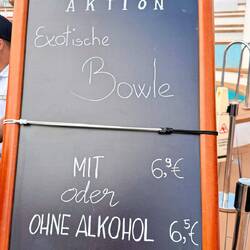 AKTION
Exotische
Bowle
MIT 6,9€
oder
OHNE ALKOHOL 6,5€